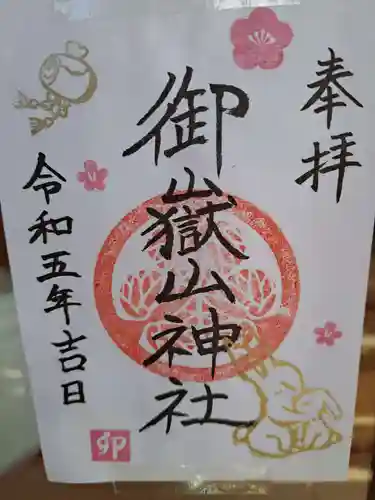 奉拝
御山嶽山神社
令和五年吉日